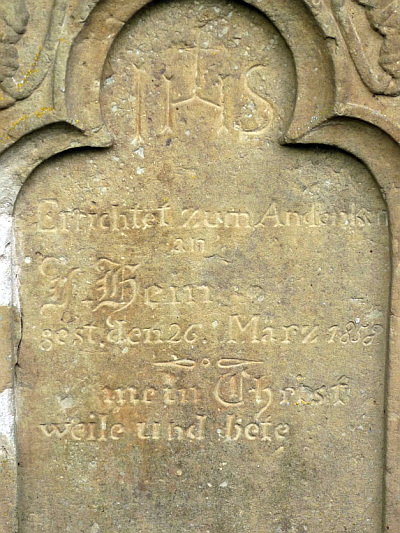 IHS
Errichtet zum Andenken
an
J. Hein
gest. den 26. März 1859
mein Christ
weile und bete